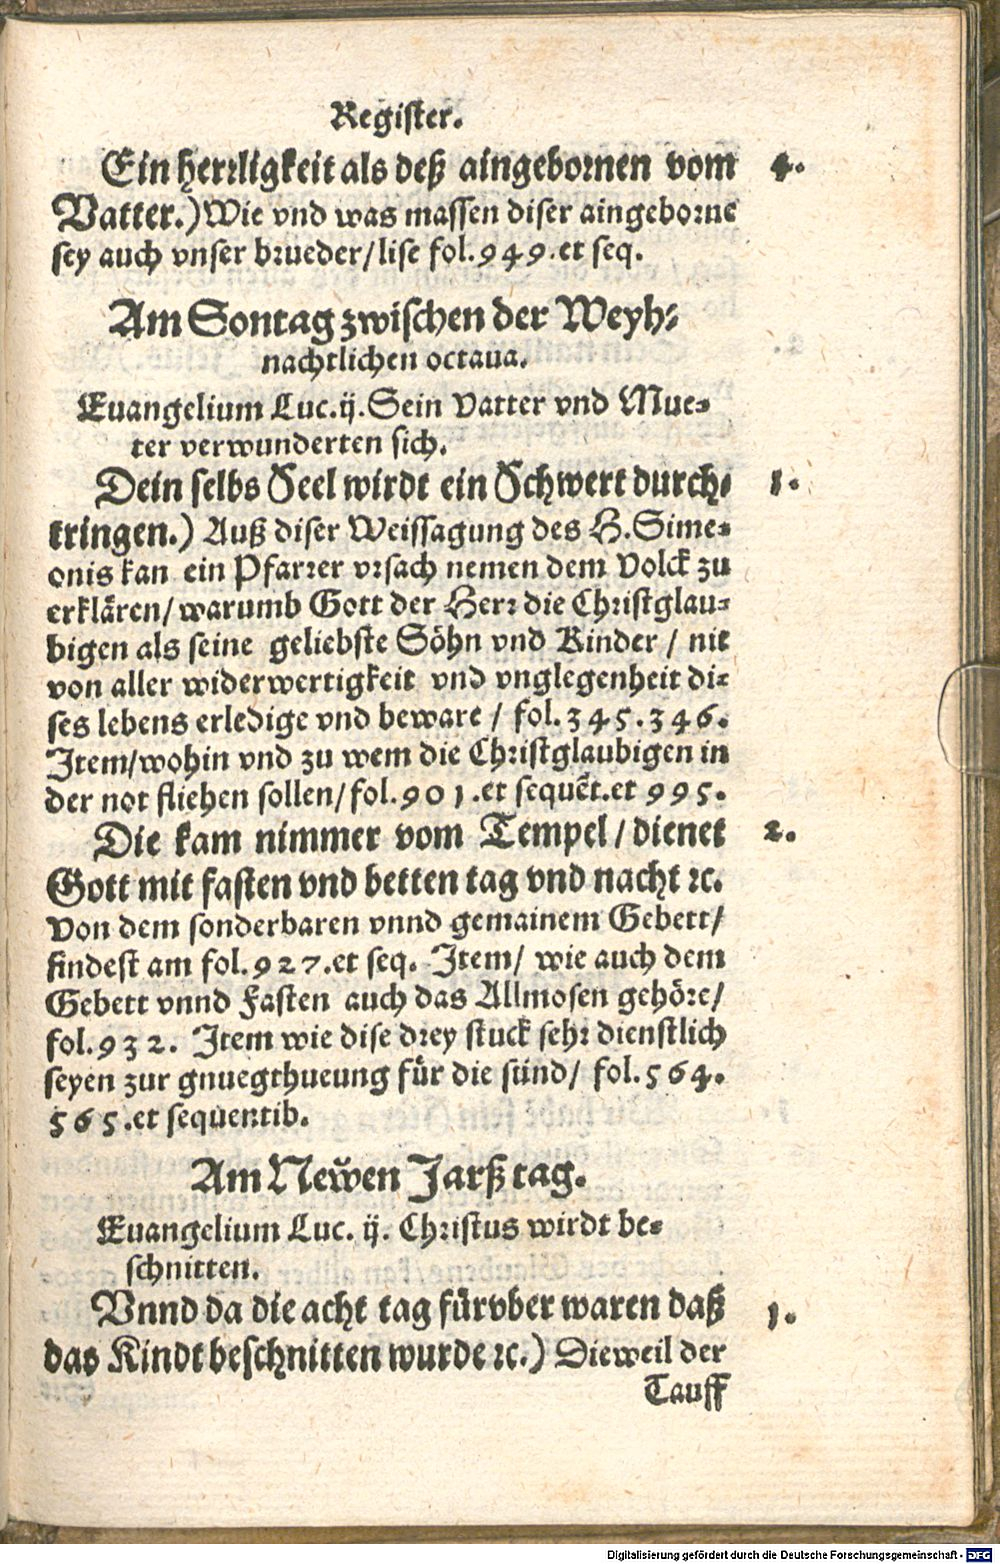 Register.
Ein herrligkeit als deß aingebornen vom 4.
Vatter.) Wie vnd was massen diser aingeborne
sey auch vnser brueder/lise fol.949.et seq.
Am Sontag zwischen der Weyh-
nachtlichen octaua.
Euangelium Luc.ij.Sein Vatter vnd Mue-
ter verwunderten sich.
Dein selbs Seel wirdt ein Schwert durch- 1.
tringen.) Auß diser Weissagung des H.Sime-
onis kan ein Pfarrer vrsach nemen dem Volck zu
erklären/warumb Gott der Herr die Christglau-
bigen als seine geliebste Söhn vnd Kinder / nit
von aller widerwertigkeit vnd vnglegenheit di-
ses lebens erledige vnd beware / fol.345.346.
Item/wohin vnd zu wem die Christglaubigen in
der not fliehen sollen/fol.901.et sequēt.et 995.
Die kam nimmer vom Tempel/dienet 2.
Gott mit fasten vnd betten tag vnd nacht ꝛc.
Von dem sonderbaren vnnd gemainem Gebett/
findest am fol.927.et seq. Item/ wie auch dem
Gebett vnnd Fasten auch das Allmosen gehöre/
fol.932. Item wie dise drey stuck sehr dienstlich
seyen zur gnuegthueung für die sünd/ fol.564.
565.et sequentib.
Am Newen Jarß tag.
Euangelium Luc. ij. Christus wirdt be-
schnitten.
Vnnd da die acht tag fürvber waren daß 1.
das Kindt beschnitten wurde ꝛc.) Dieweil der
Tauff
Digitalisierung gefördert durch die Deutsche Forschungsgemeinschaft - DFG